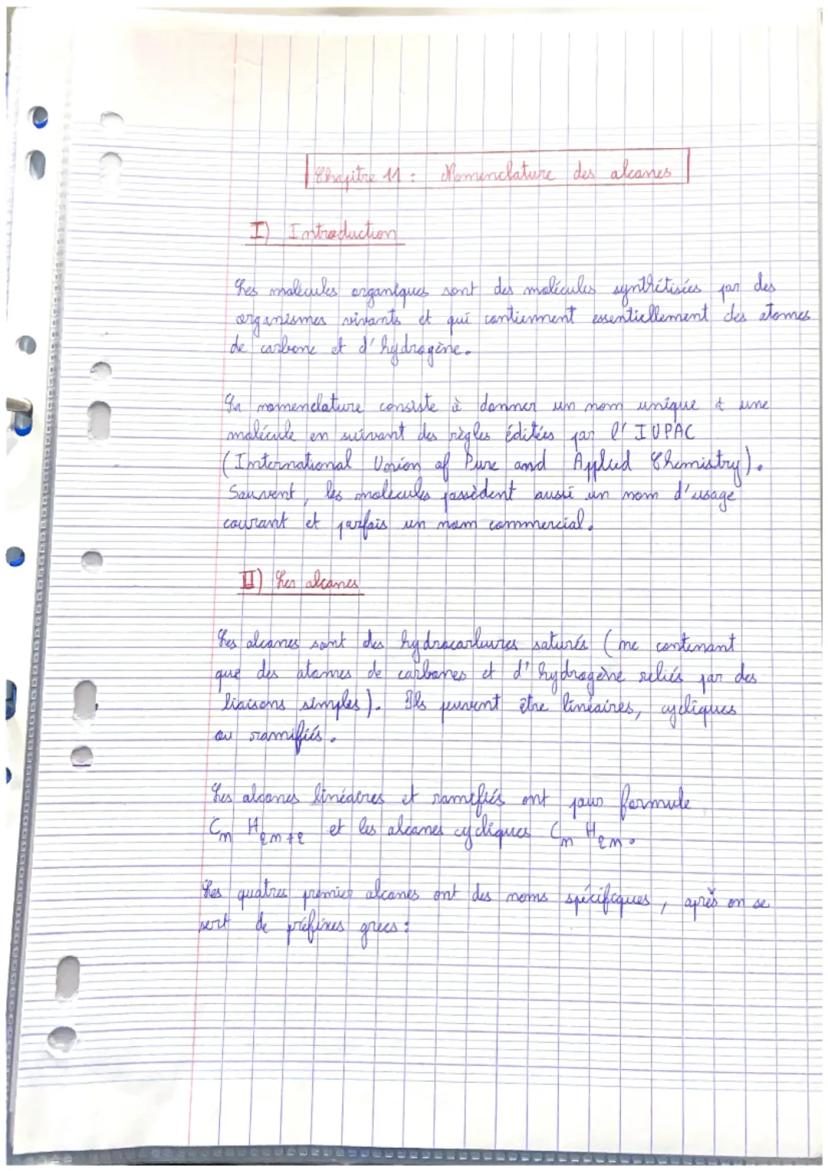 Chapitre 11 : Nomenclature des alcanes
I) Introduction
Les molécules organiques sont des molécules synthétisées par des
organismes vivants et qui contiennent essentiellement des atomes
de carbone et d'hydrogène.
La nomenclature consiste à donner un nom unique à une
molécule en suivant des règles éditées par l'IUPAC
(International Union of Pure and Applied Chemistry).
Souvent, les molécules possèdent aussi un nom d'usage
courant et parfois un nom commercial.
II) Les alcanes
Les alcanes sont des hydrocarbures saturés (ne contenant
que des atomes de carbones et d'hydrogène reliés par des
liaisons simples). Ils peuvent être linéaires, cycliques
ou ramifiés.
Les alcanes linéaires et ramifiés ont pour formule
CnH2n+2 et les alcanes cycliques CnH2n.
Les quatres premier alcanes ont des noms spécifiques, après on se
sert de préfixes grecs :